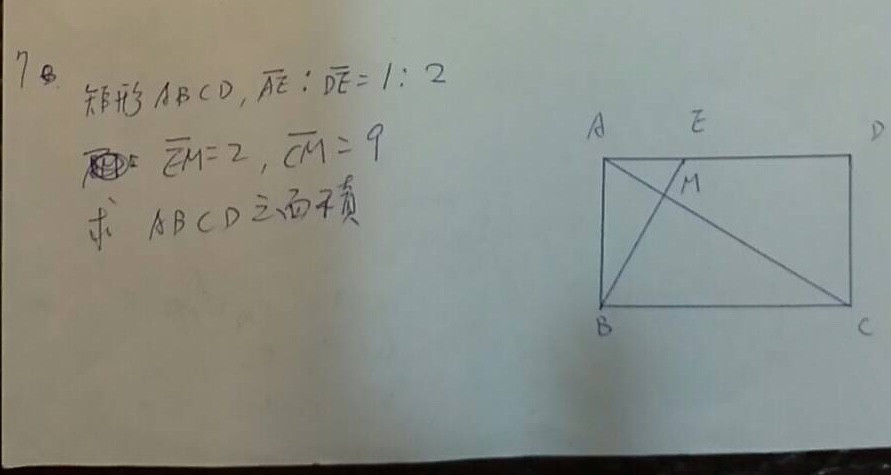 7.
矩形ABCD, A̅E̅:D̅E̅=1:2
E̅M̅=2, C̅M̅=9
求 ABCD之面積
A E D
M
B C